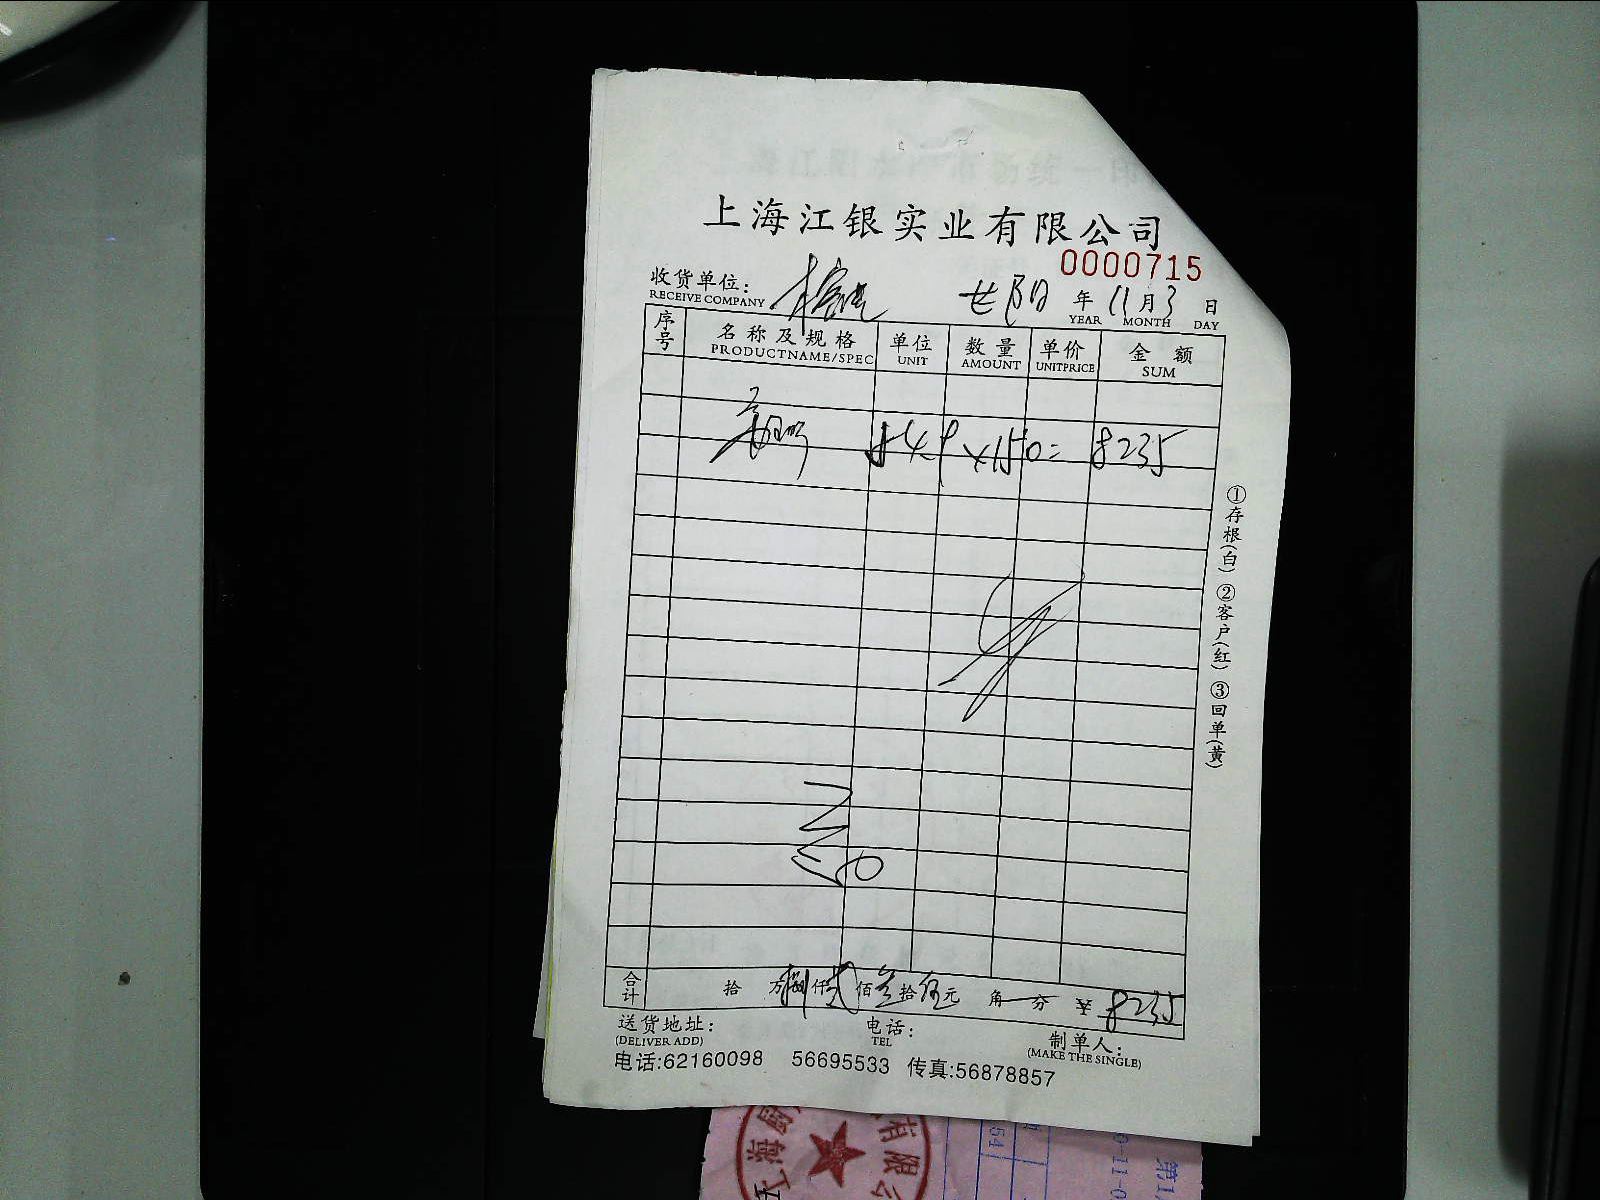 上海江银实业有限公司
0000715
收货单位：
RECEIVE COMPANY
年 11 月 3 日
YEAR MONTH DAY
序号 名称及规格 单位 数量 单价 金额
PRODUCTNAME/SPEC UNIT AMOUNT UNITPRICE SUM
54.9 ×150= 8235
①存根(白) ②客户(红) ③回单(黄)
合计 拾 万 捌 仟 贰 佰 叁 拾 伍 元 角 分 ¥ 8235
送货地址： 电话： 制单人：
(DELIVER ADD) TEL (MAKE THE SINGLE)
电话:62160098 56695533 传真:56878857
有限公